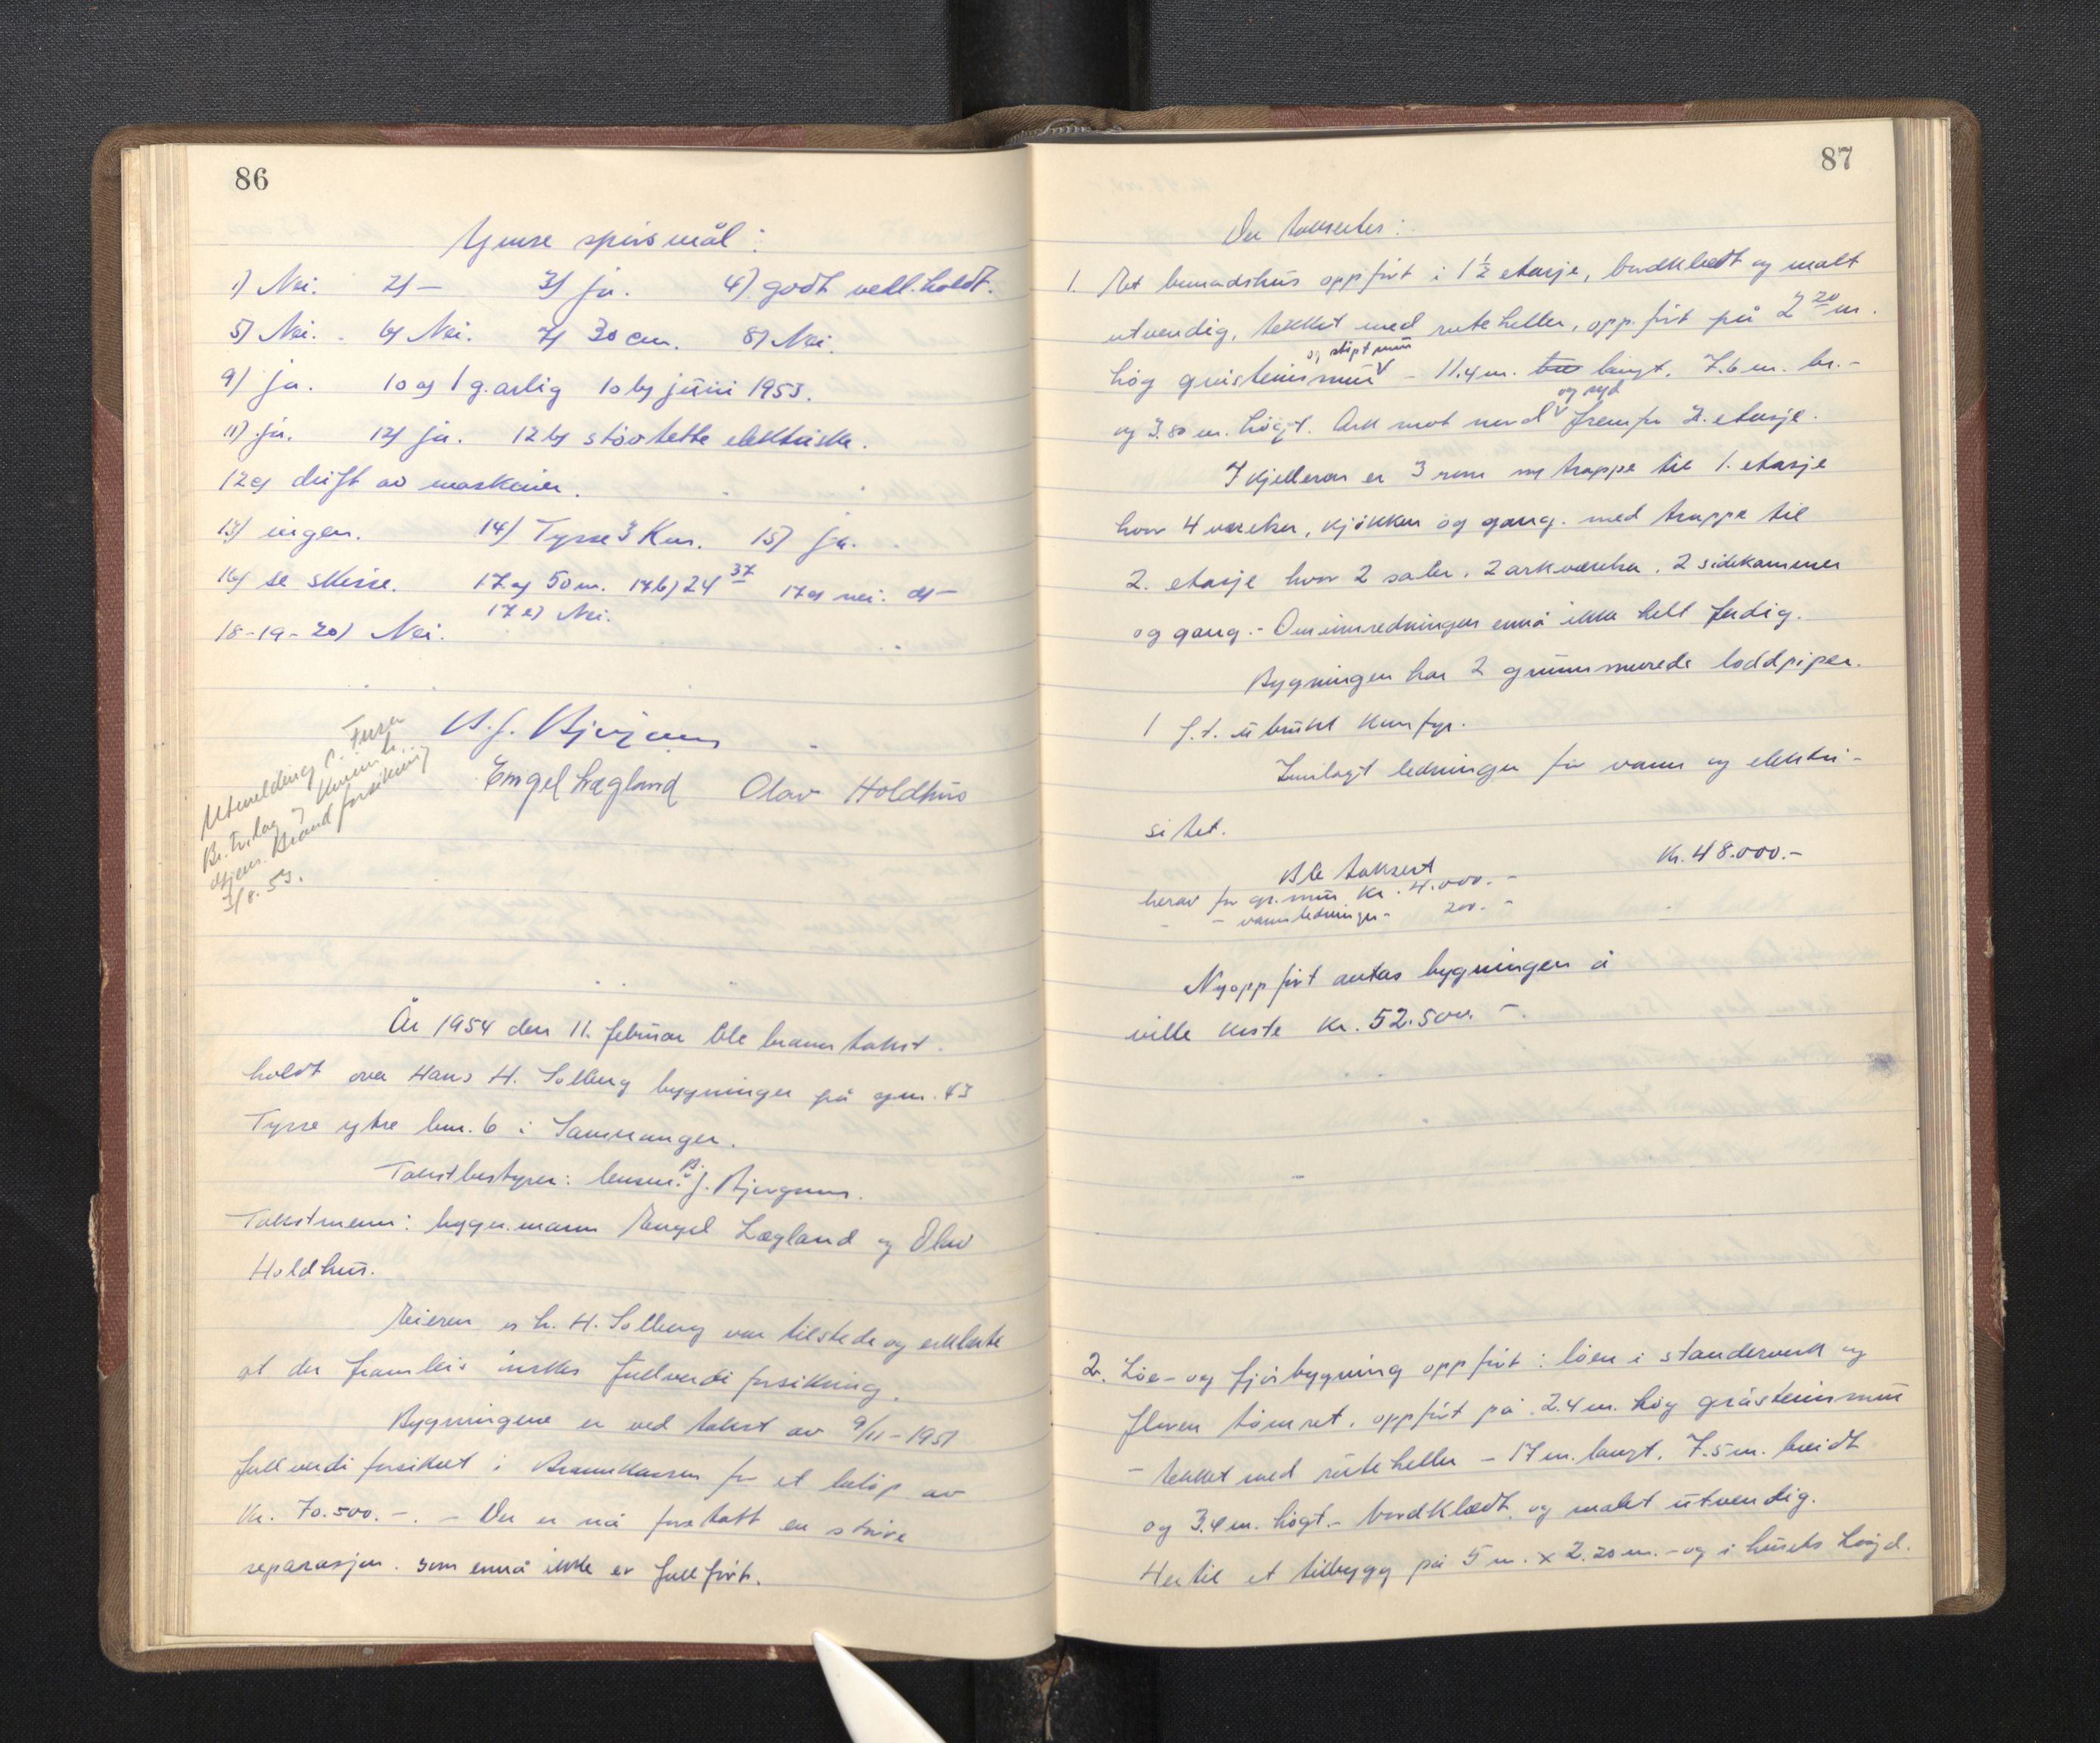 86
Ymse spörsmål:
1) Nei. 2) — 3) ja. 4) godt vedl.holdt.
5) Nei. 6) Nei. 7) 30 cm. 8) Nei.
9) ja. 10 a) 1 g. årlig 10 b) juni 1953.
11) ja. 12) ja. 12 b) stövtette elektriske.
12 c) drift av maskiner.
13) ingen. 14) Tysse 3 Km. 15) ja.
16) se skisse. 17 a) 50 m. 17 b) 24 37 17 c) nei. d) —
17 e) Nei.
18-19-20) Nei.
Utmelding
Brand forsikring
3/8.53.
Engel Lægland Olav Holdhus
År 1954 den 11. februar ble branntakst
holdt over Hans H. Solberg bygninger på gnr. 43
Tysse ytre bnr. 6 i Samnanger.
Takstbestyrer: lensm. B. J. Bjergum.
Takstmenn: bygn.mann Engel Lægland og Olav
Holdhus.
Eieren H. Solberg var tilstede og erklærte
at der framleis önskes fullverdi forsikring.
Bygningene er ved takst av 9/11-1951
fullverdi forsikret i Brannkassen for et belöp av
Kr. 70.500.-. - Der er nå foretatt en större
reparasjon. som ennå ikke er fullfört.
87
Der takseres:
1. Et bunadshus oppfört i 1½ etasje, bordkledt og malt
utvendig, tekket med ruteheller, oppfört på 2 20 m.
og stöpt mur
hög gråsteinsmur - 11.4 m. langt. 7.6 m. br.-
og syd
og 3.80 m. högt. Ark mot nord framfor 2. etasje.
I kjelleren er 3 rom og trappe til 1. etasje
hvor 4 værelser, kjökken og gang. med trappe til
2. etasje hvor 2 saler, 2 arkværelser, 2 sidekammer
og gang.- Ominnredningen ennå ikke helt ferdig.
Bygningen har 2 grunnmurede loddpiper.
1 f.t. ubrukt komfyr.
Innlagt ledninger for vann og elektri-
sitet.
Ble taksert Kr. 48.000.-
herav for gr.mur Kr. 4.000.-
- - vannledninger- 200.-
Nyoppfört antas bygningen å
ville koste Kr. 52.500.-.
2. Löe- og fjösbygning oppfört: löen i standerverk og
floren tömret. oppfört på 2.4 m. hög gråsteinsmur
- tekket med ruteheller - 17 m. langt. 7.5 m. breidt
og 3.4 m. högt.- bordklædt. og malet utvendig.
Hertil et tilbygg på 5 m. x 2.20 m. - og i husets höyd.